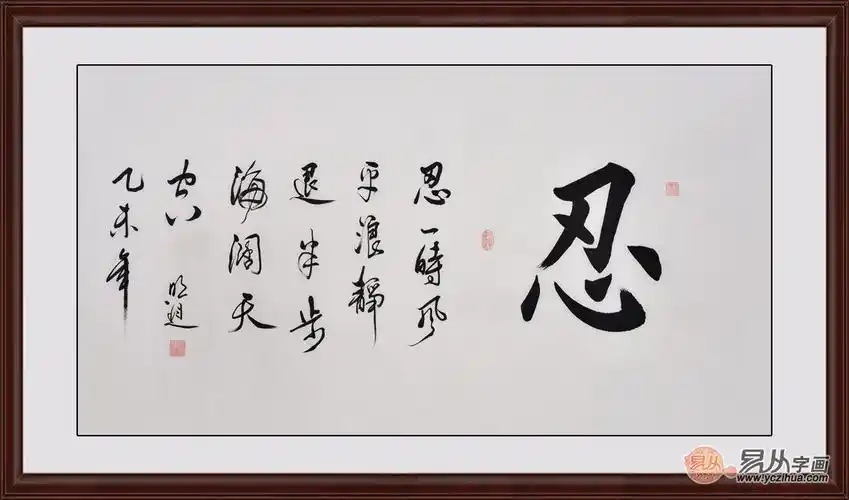 忍
忍一時風
平浪靜
退半步
海闊天
空
乙未年
易从
易从字画
www.yczihua.com